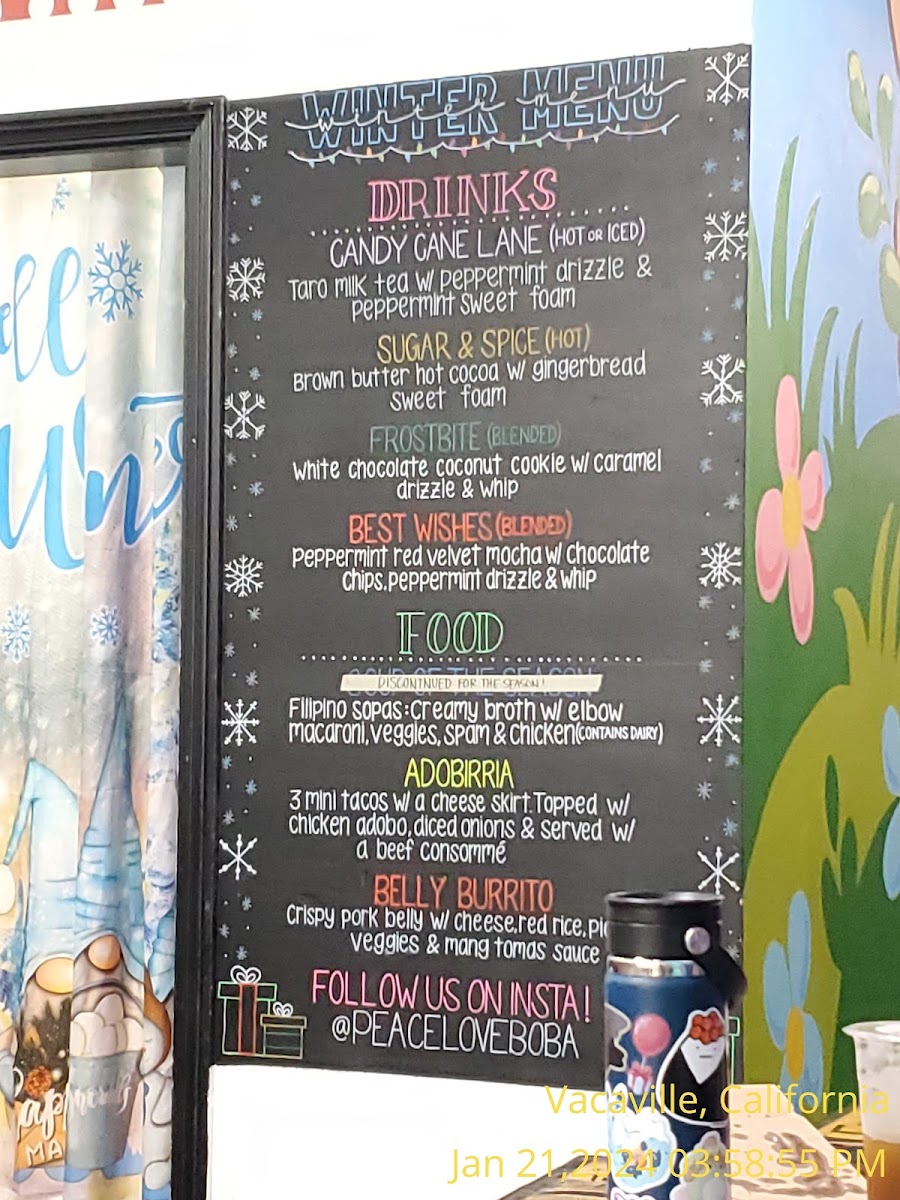 WINTER MENU
winter menu
DRINKS
CANDY CANE LANE (HOT OR ICED)
Taro milk tea w/ peppermint drizzle &
peppermint sweet foam
SUGAR & SPICE (HOT)
Brown butter hot cocoa w/ gingerbread
sweet foam
FROSTBITE (BLENDED)
White chocolate coconut cookie w/ caramel
drizzle & whip
BEST WISHES (BLENDED)
Peppermint red velvet mocha w/ chocolate
chips, peppermint drizzle & whip
FOOD
SOUP OF THE SEASON
DISCONTINUED FOR THE SEASON!
Filipino sopas: creamy broth w/ elbow
macaroni, veggies, spam & chicken (CONTAINS DAIRY)
ADOBIRRIA
3 mini tacos w/ a cheese skirt. Topped w/
chicken adobo, diced onions & served w/
a beef consommé
BELLY BURRITO
Crispy pork belly w/ cheese, red rice,
veggies & mang tomas sauce
FOLLOW US ON INSTA!
@PEACELOVEBOBA
Vacaville, California
Jan 21,2024 03:58:55 PM